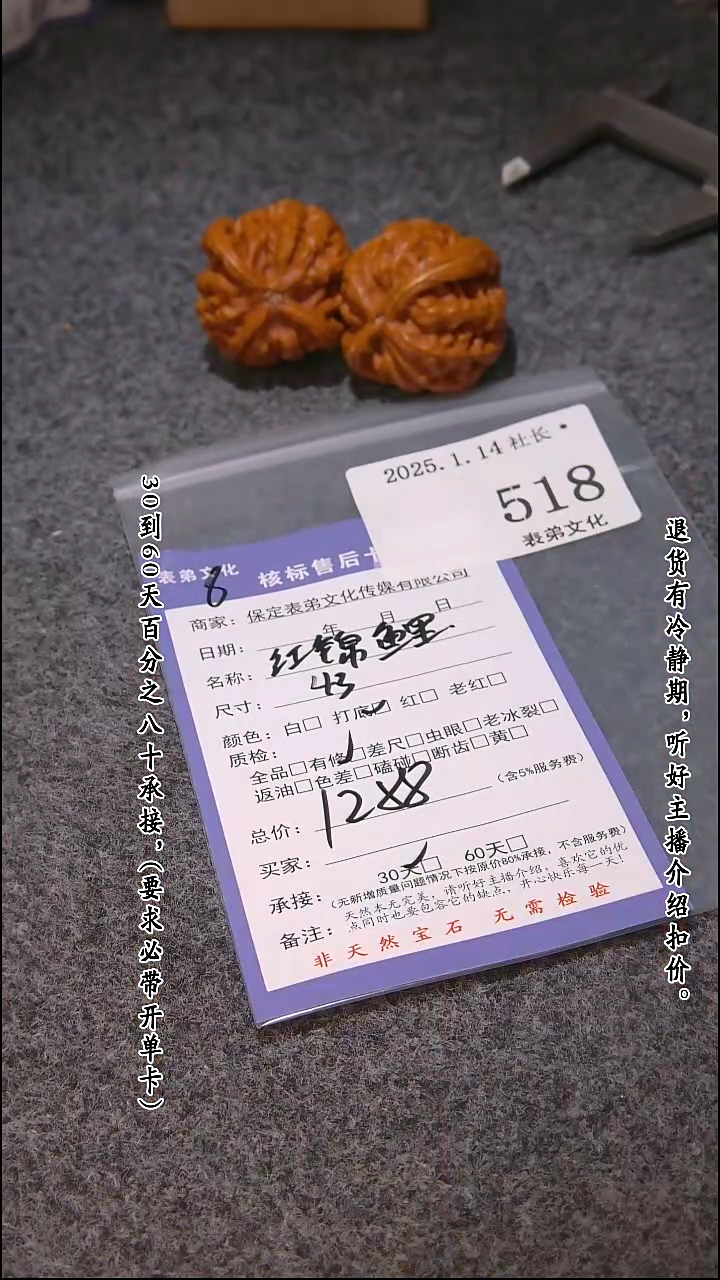 2025.1.14 社长
518
表弟文化
表弟文化 核标售后卡
8
商家：保定表弟文化传媒有限公司
日期： 年 月 日
名称：红锦鲤
尺寸：43
颜色：白□ 打底□ 红□ 老红□
质检：
全品□有修□差尺□虫眼□老冰裂□
返油□色差□磕碰□断齿□黄□
总价：1288 （含5%服务费）
买家：
承接：30天□ 60天□
（无新增质量问题情况下按原价80%承接，不含服务费）
备注：天然本无完美，请听好主播介绍，喜欢它的优
点同时也要包容它的缺点，开心快乐每一天！
非天然宝石 无需检验
30到60天百分之八十承接，（要求必带开单卡）
退货有冷静期，听好主播介绍扣价。